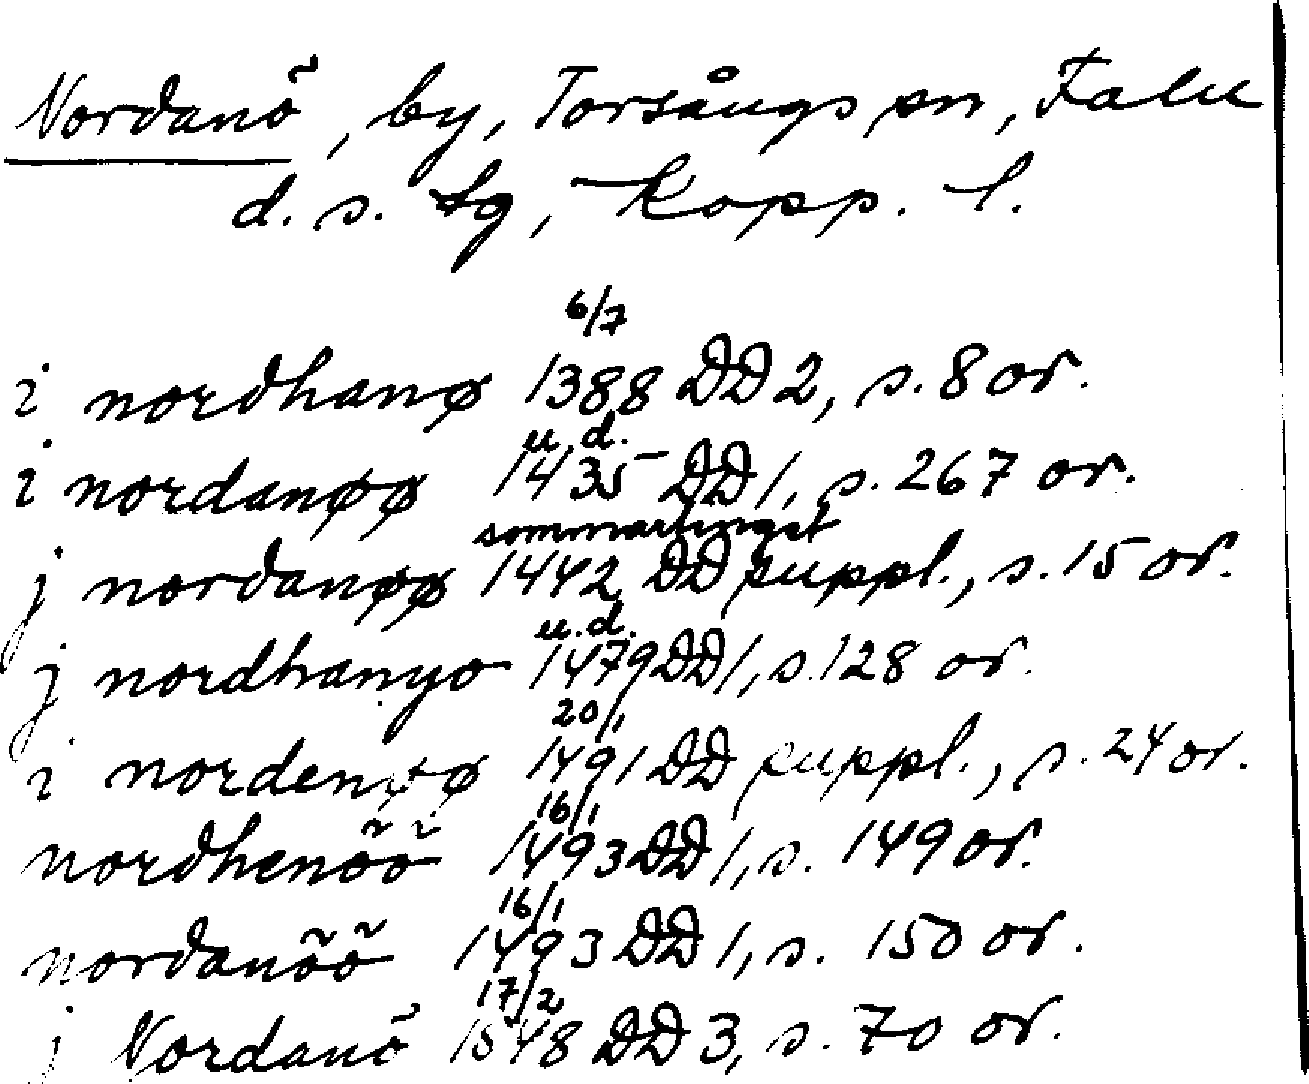 Nordanö, by, Torsångs sn, Falu
d.s. tg, Kopp. l.
6/7
i nordhanø 1388 DD 2, s. 8 or.
u.d.
i nordanøø 1435 DD 1, s. 267 or.
sommartinget
j nordanøø 1442 DD suppl., s. 15 or.
u.d.
j nordhanyo 1479 DD 1, s. 128 or.
20/1
i nordenøø 1491 DD suppl., s. 24 or.
16/1
nordhenöö 1493 DD 1, s. 149 or.
16/1
nordanöö 1493 DD 1, s. 150 or.
17/2
j Nordanö 1548 DD 3, s. 70 or.